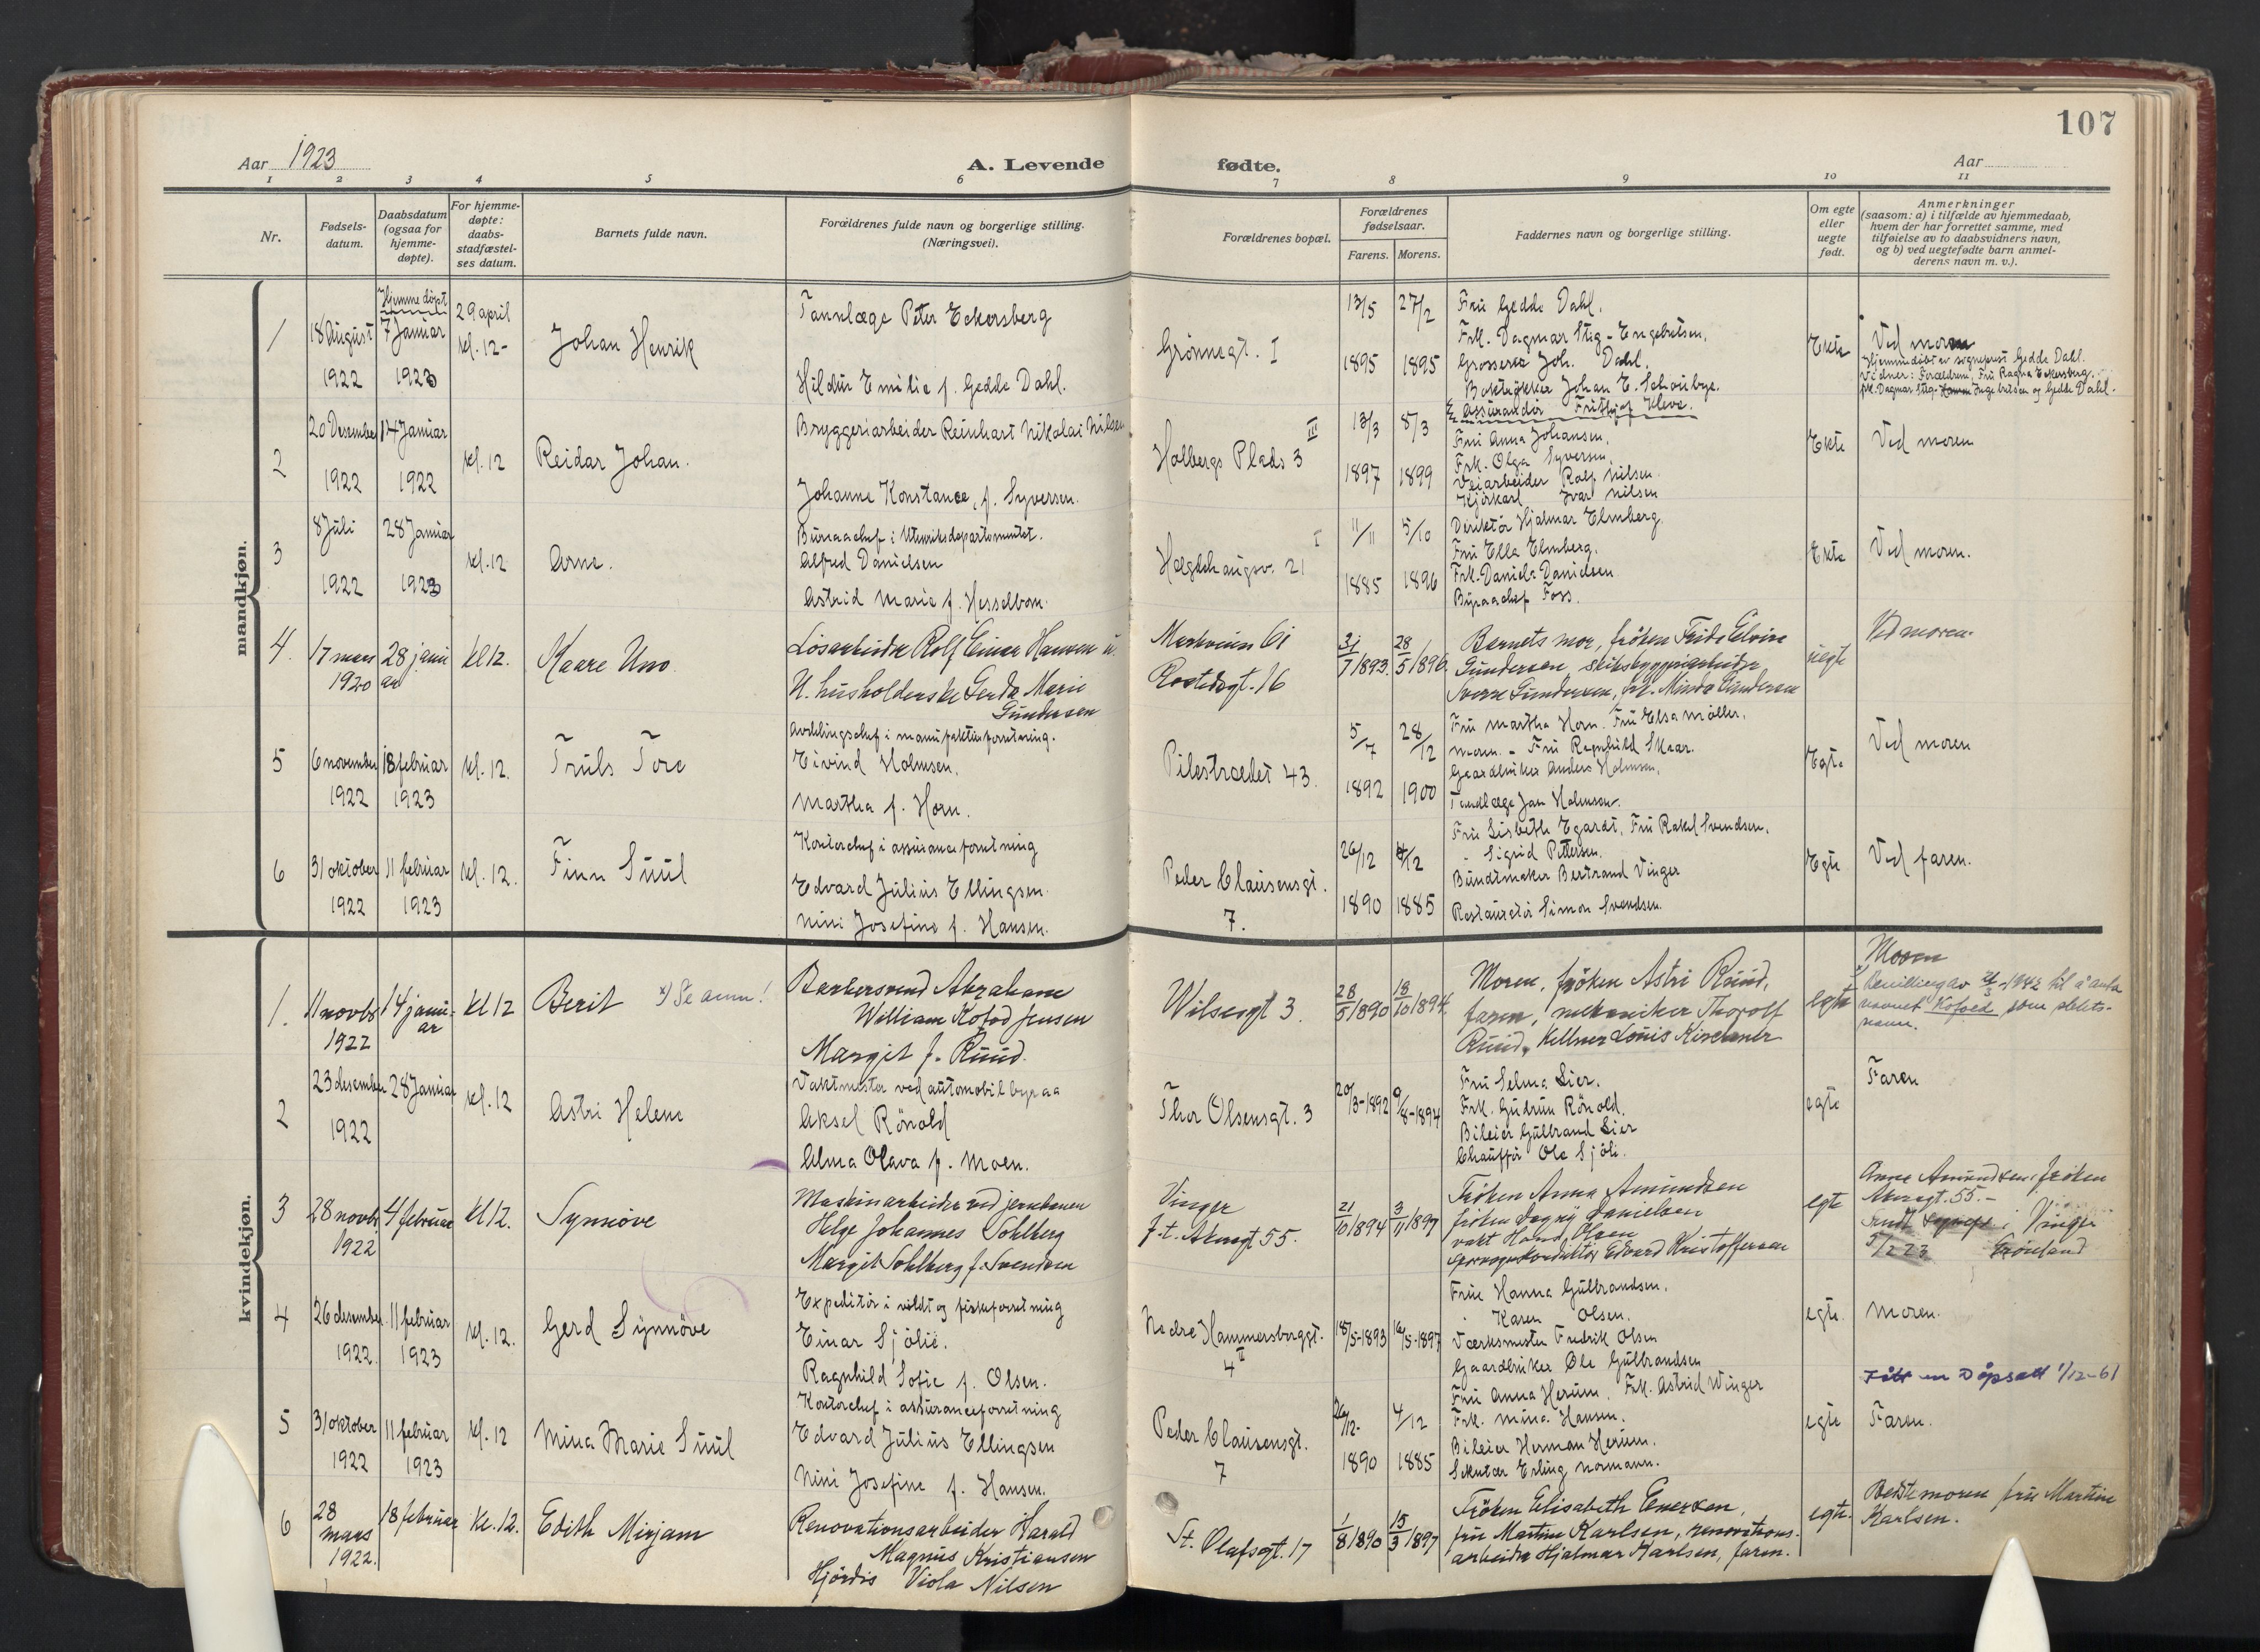 107
Aar 1923
A. Levende
fødte.
Aar
1 2 3 4 5 6 7 8 9 10 11
Nr.
Fødsels-
datum.
Daabsdatum
(ogsaa for
hjemme-
døpte).
For hjemme-
døpte:
daabs-
stadfæstel-
ses datum.
Barnets fulde navn.
Forældrenes fulde navn og borgerlige stilling.
(Næringsvei).
Forældrenes bopæl.
Forældrenes
fødselsaar.
Farens. Morens.
Faddernes navn og borgerlige stilling.
Om egte
eller
uegte
født.
Anmerkninger
(saasom: a) i tilfælde av hjemmedaab,
hvem der har forrettet samme, med
tilføielse av to daabsvidners navn,
og b) ved uegtefødte barn anmel-
derens navn m. v.).
mandkjøn.
1
18 August
1922
Hjemmedøpt
7 Januar
1923
29 april
kl. 12-
Johan Henrik
Tannlæge Peter Eckersberg
Hildur Emilie f. Gedde Dahl.
Grønnegt. I
13/5
1895
27/2
1895
Fru Gedde Dahl.
Frk. Dagmar Stig-Engebretsen.
Grosserer Joh. Dahl.
Boktrykker Johan E. Schoubye.
Assurandør Frithjof Kleve.
Ekte
Ved moren
Hjemmedøbt av sogneprest Gedde Dahl.
Vidner: Forældrene, Fru Ragna Eckersberg.
frk. Dagmar Stig- Ingebretsen og Gedde Dahl.
2
20 Desember
1922
14 Januar
1922
kl. 12
Reidar Johan.
Bryggeriarbeider Reinhart Nikolai Nilsen
Johanne Konstance, f. Syversen.
Holbergs Plads 3 III
13/3
1897
8/3
1899
Fru Anna Johansen.
Frk. Olga Syversen.
Veiarbeider Ralf Nilsen.
Kjørkarl Ivar Nilsen
Ekte
Ved moren
3
8 Juli
1922
28 Januar
1923
kl. 12
Arne.
Bureauchef i Utenriksdepartementet.
Alfred Danielsen
Astrid Marie f. Hesselbom.
Hægdehaugsv. 21 I
11/11
1885
5/10
1896
Direktør Hjalmar Elmberg
Fru Ella Elmberg.
Frk. Daniela Danielsen
Byraachef Foss.
Ekte
Ved moren.
4.
17 mars
1920
28 janu
ar
kl 12.
Kaare Uno
Løsarbeider Rolf Einar Hansen u.
U. husholderske Gerda Marie
Gundersen
Markveien 61
Rostedsgt. 16
31/7 1893.
28/5 1896.
Barnets mor, frøken Frida Elvira
Gundersen, skibsbyggeriarbeider
Sverre Gundersen, frk. Minda Gundersen
uegte
Ved moren.
5
6 november
1922
18 februar
1923
kl. 12.
Truls Tore
Avdelingschef i manufakturforretning.
Eivind Holmsen.
Martha f. Horn.
Pilestrædet 43.
5/7
1892
28/12
1900
Fru Martha Horn. Fru Elsa Møller.
moren. - Fru Ragnhild Skaar.
Gaardbruker Anders Holmsen.
Tandlæge Jan Holmsen.
Egte
Ved moren
6
31 oktober
1922
11 februar
1923
kl. 12.
Finn Suul
Kontorchef i assuranceforretning
Edvard Julius Ellingsen.
Nini Josefine f. Hansen.
Peder Clausensgt.
7.
26/12
1890
4/12
1885
Fru Lisbeth Egardt, Fru Rakel Svendsen.
" Sigrid Pettersen.
Bundtmaker Bertrand Vinger
Restauratør Simon Svendsen.
Egte
Ved faren.
kvindekjøn.
1.
11 novbr
1922
14 janu-
ar
kl 12
Berit x) Se anm!
Barbersvend Abraham
William Kofod Jensen
Margit f. Ruud.
Wilsesgt 3.
28/5 1890
18/10 1894.
Moren, frøken Astri Ruud,
faren, mekaniker Thorolf
Ruud, Kellner Louis Kirchner
egte
Moren
x) Bevilling av 1942 til å anta
navnet Kofoed som slekts-
navn.
2
23 desember
1922
28 Januar
kl. 12
Astri Helene
Vaktmester ved automobilbyraa
Aksel Rönold
Alma Olava f. Moen.
Thor Olsensgt. 3
20/3-1892
9/8-1894
Fru Selma Lier.
Frk. Gudrun Rönold.
Bileier Gulbrand Lier
Chauffør Ole Sjöli.
egte
Faren
3
28 novbr
1922
4 februar
kl 12.
Synnøve
Maskinarbeider ved jernbanen
Helge Johannes Sohlberg
Margit Sohlberg f. Svendsen
Vinger
f.t. Akersgt 55.
21/10 1894
3/11 1897
Frøken Anna Amundsen
frøken Dagny Danielsen
vakt Hans Olsen
sporvognskonduktør Edvard Kristoffersen
egte
Anna Amundsen, frøken
Akersgt. 55. -
Sendt i Vinger
5/2 23 Grønland
4
26 desember
1922.
11 februar
1923
kl. 12.
Gerd Synnöve
Expeditør i vildt og fiskeforretning
Einar Sjölie.
Ragnhild Sofie f. Olsen.
Nedre Hammersborggt.
4 II
18/5-1893
16/5-1897
Frue Hanna Gulbrandsen.
" Karen Olsen.
Værksmester Fredrik Olsen
Gaardbruker Ole Gulbrandsen
egte
Moren.
Fått en Dåpsatt 1/12-61
5
31 oktober
1922
11 februar
1923
kl. 12
Mina Marie Suul
Kontorchef i assuranceforretning
Edvard Julius Ellingsen
Nini Josefine f. Hansen.
Peder Clausensgt.
7
26/12-
1890
4/12
1885
Fru Anna Herum, Frk. Astrid Winger
Frk. Mina Hansen.
Bileier Herman Herum.
Sekretær Erling Normann.
egte
Faren.
6
28
mars
1922.
18 februar
Kl. 12.
Edith Mirjam
Renovationsarbeider Harald
Magnus Kristiansen
Hjørdis Viola Nilsen
St. Olafsgt. 17
1/8 1890
15/3 1897
Frøken Elisabeth Enersen,
fru Martine Karlsen, renovations-
arbeider Hjalmar Karlsen, faren.
egte.
Bedstemoren fru Martine
Karlsen.